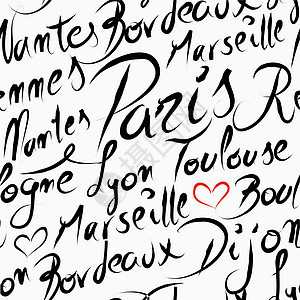 Nantes Bordeaux
Marseille
ennes Paris Re
Nantes
ogne Lyon Toulouse
Marseille Boul
on Bordeaux Dijon